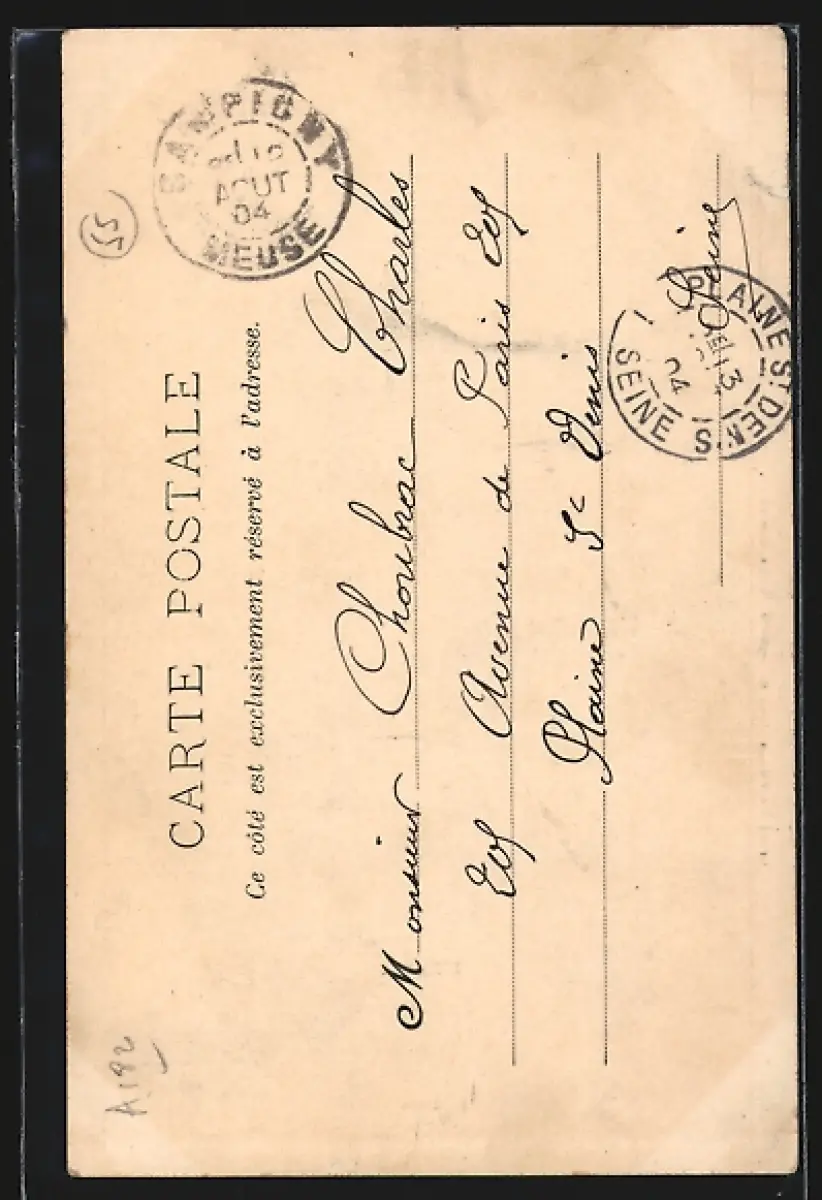 CARTE POSTALE
Ce côté est exclusivement réservé à l'adresse.
Monsieur Choubrac Charles
Avenue de Paris
Plaine St Denis
Seine
SAMPIGNY
AOUT
04
MEUSE
PLAINE ST DENIS
13
04
SEINE
55
A192